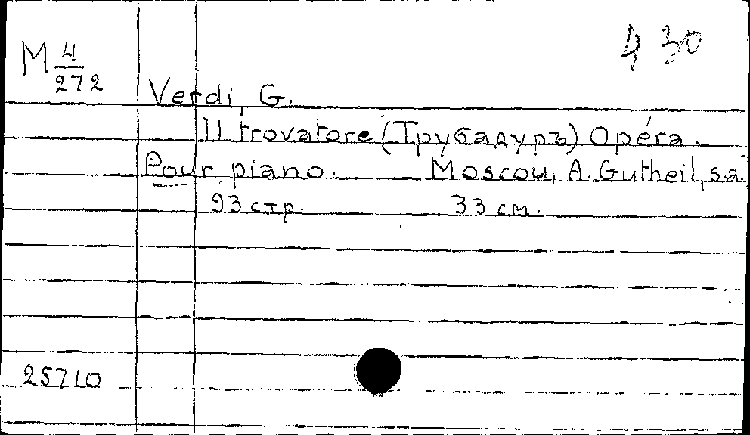 M 4/272
Verdi, G.
Il trovatore (Трубадуръ) Opéra.
Pour piano. Moscou, A. Gutheil, s.a.
93 стр. 33 см.
25710